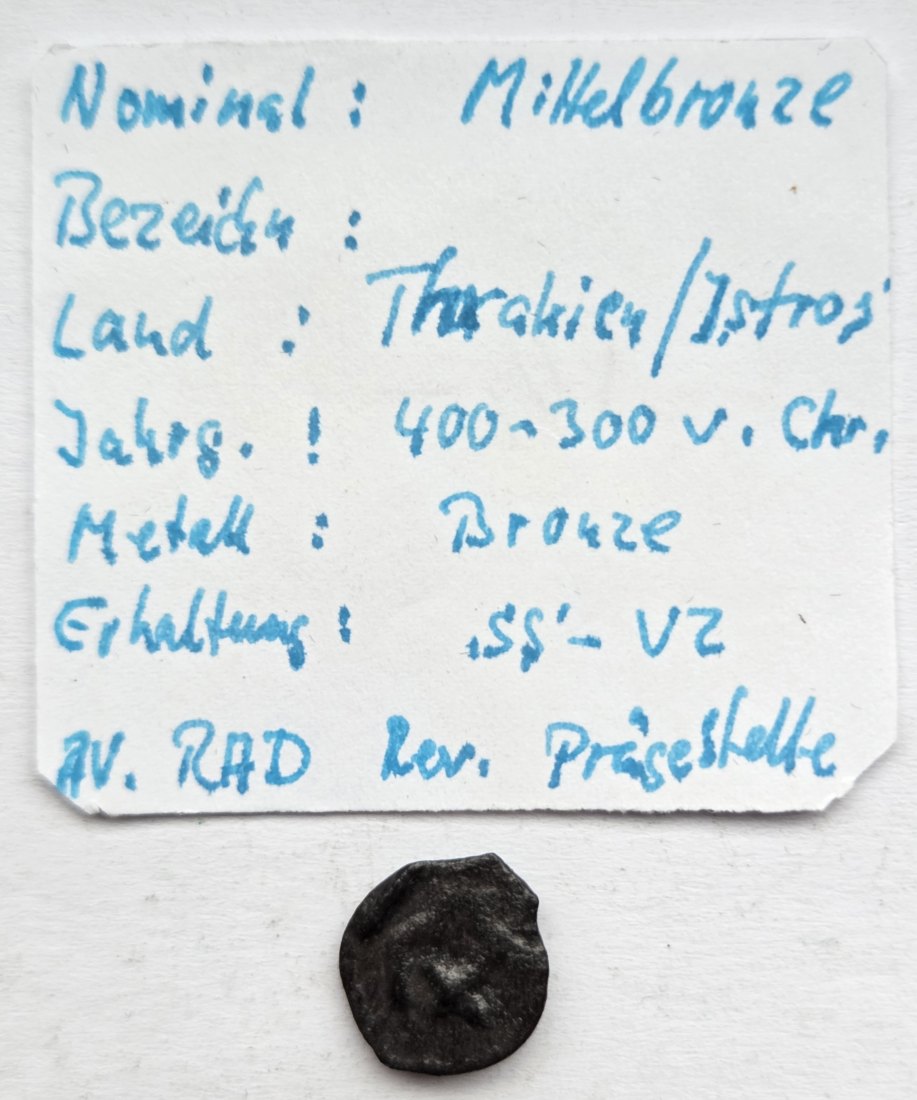 Nominal : Mittelbronze
Bezeichn :
Land : Thrakien/Istros
Jahrg. ! 400-300 v. Chr.
Metall : Bronze
Erhaltung : "SS"- VZ
AV. RAD Rev. Prägestelle